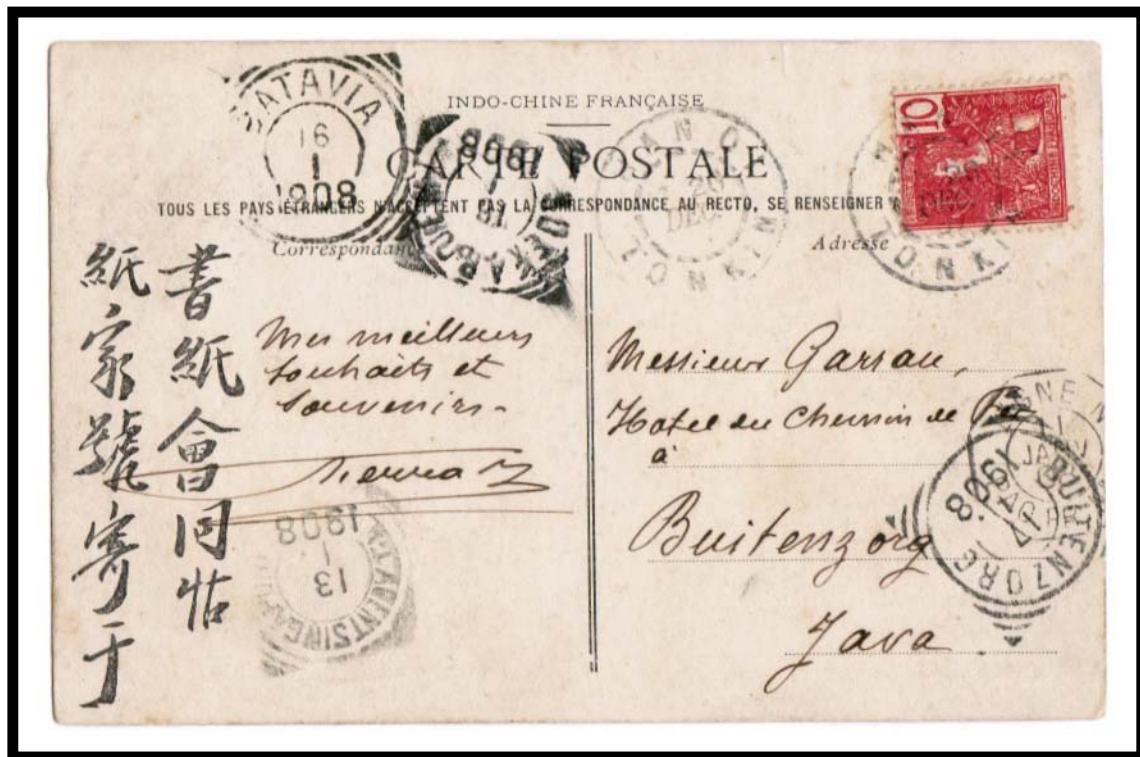 INDO-CHINE FRANÇAISE
CARTE POSTALE
TOUS LES PAYS ÉTRANGERS N'ACCEPTENT PAS LA CORRESPONDANCE AU RECTO, SE RENSEIGNER
Correspondance
Adresse
10
BATAVIA
16
1
1908
1908
1
16
HANOI
TONKIN
26
DEC
TONKIN
DEC
書紙會同
紙家號寄于
Mes meilleurs
souhaits et
souvenirs-
Messieur Garrau,
Hotel du Chemin de Fer
à
Buitenzorg
Java
BUITENZORG
1908
JAN
N.I. AGENT SINGAPORE
13
1
1908